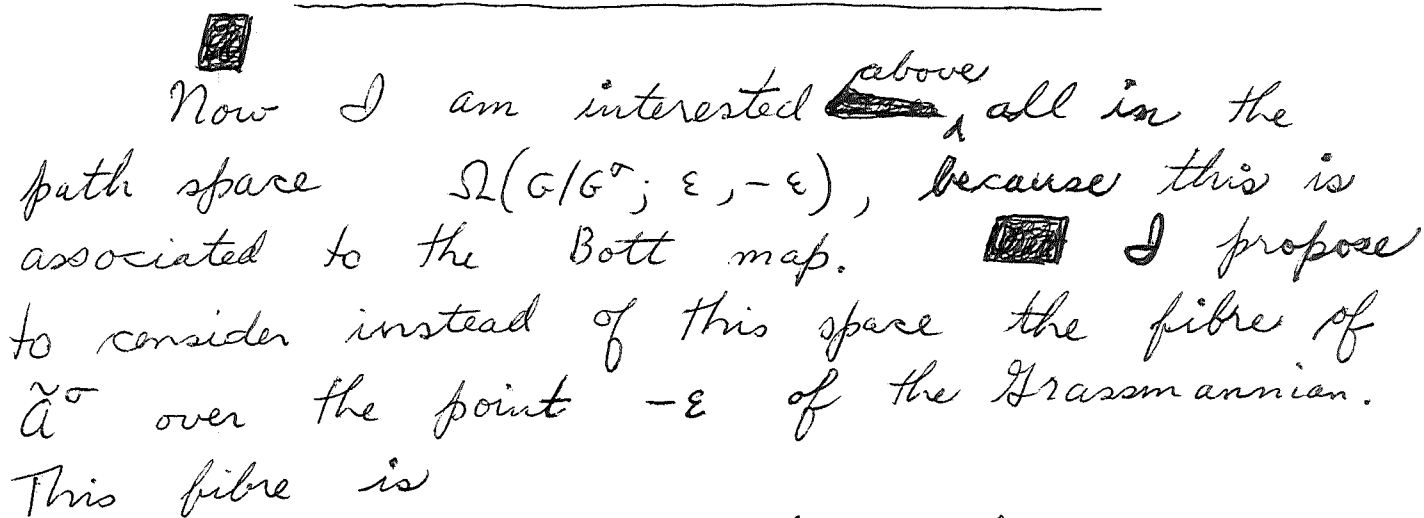 Now I am interested above all in the
path space Ω(G/G^σ; ε, -ε), because this is
associated to the Bott map. I propose
to consider instead of this space the fibre of
ã^σ over the point -ε of the Grassmannian.
This fibre is